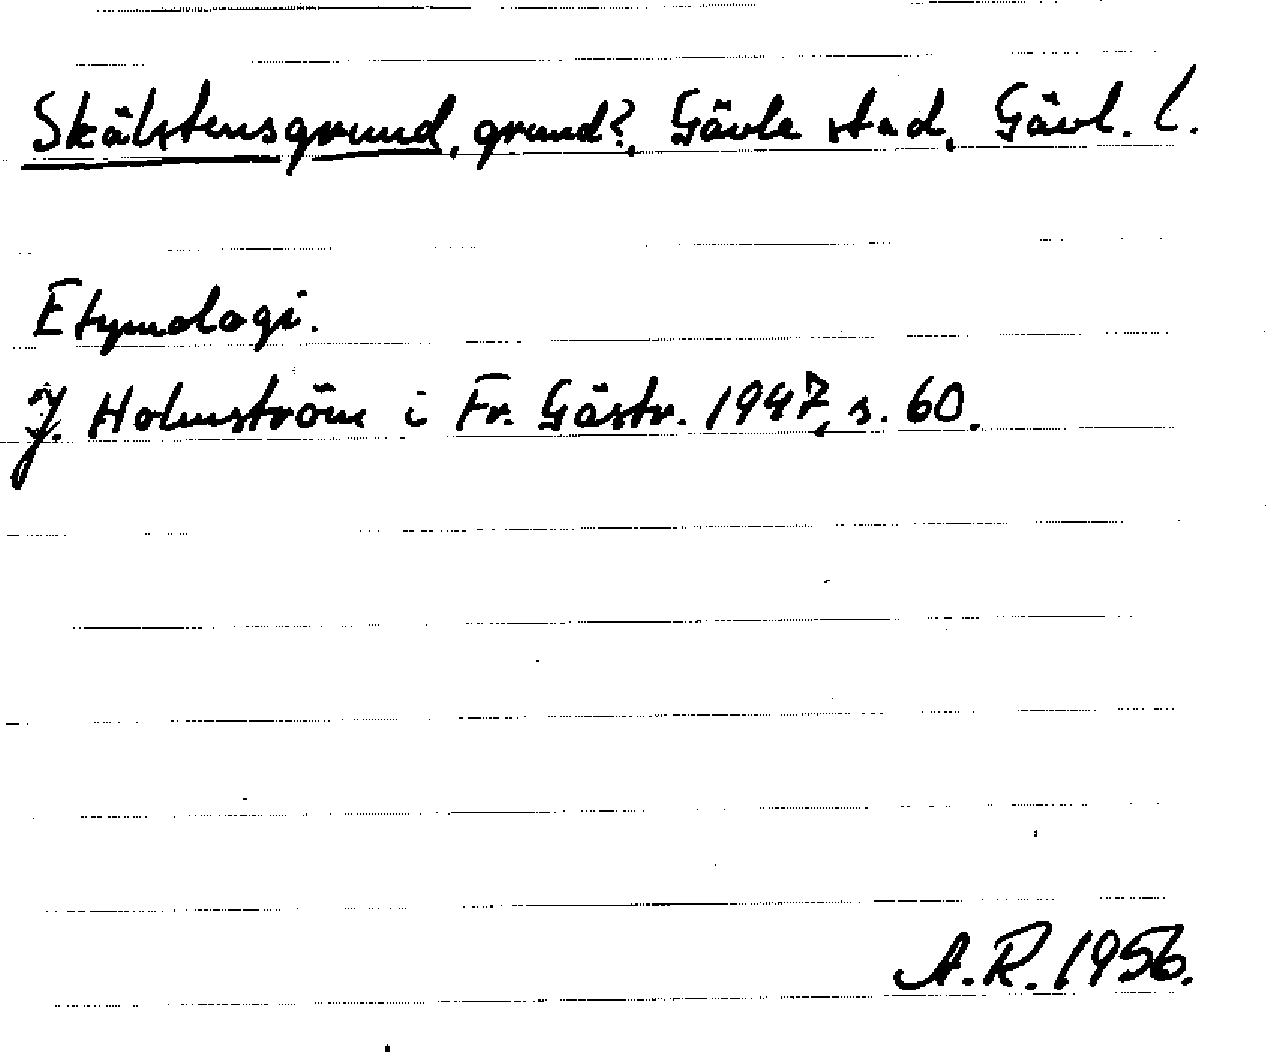 Skälstensgrund, grund?, Gävle stad, Gävl. l.
Etymologi.
J. Holmström i Fr. Gästr. 1947, s. 60.
A.R. 1956.